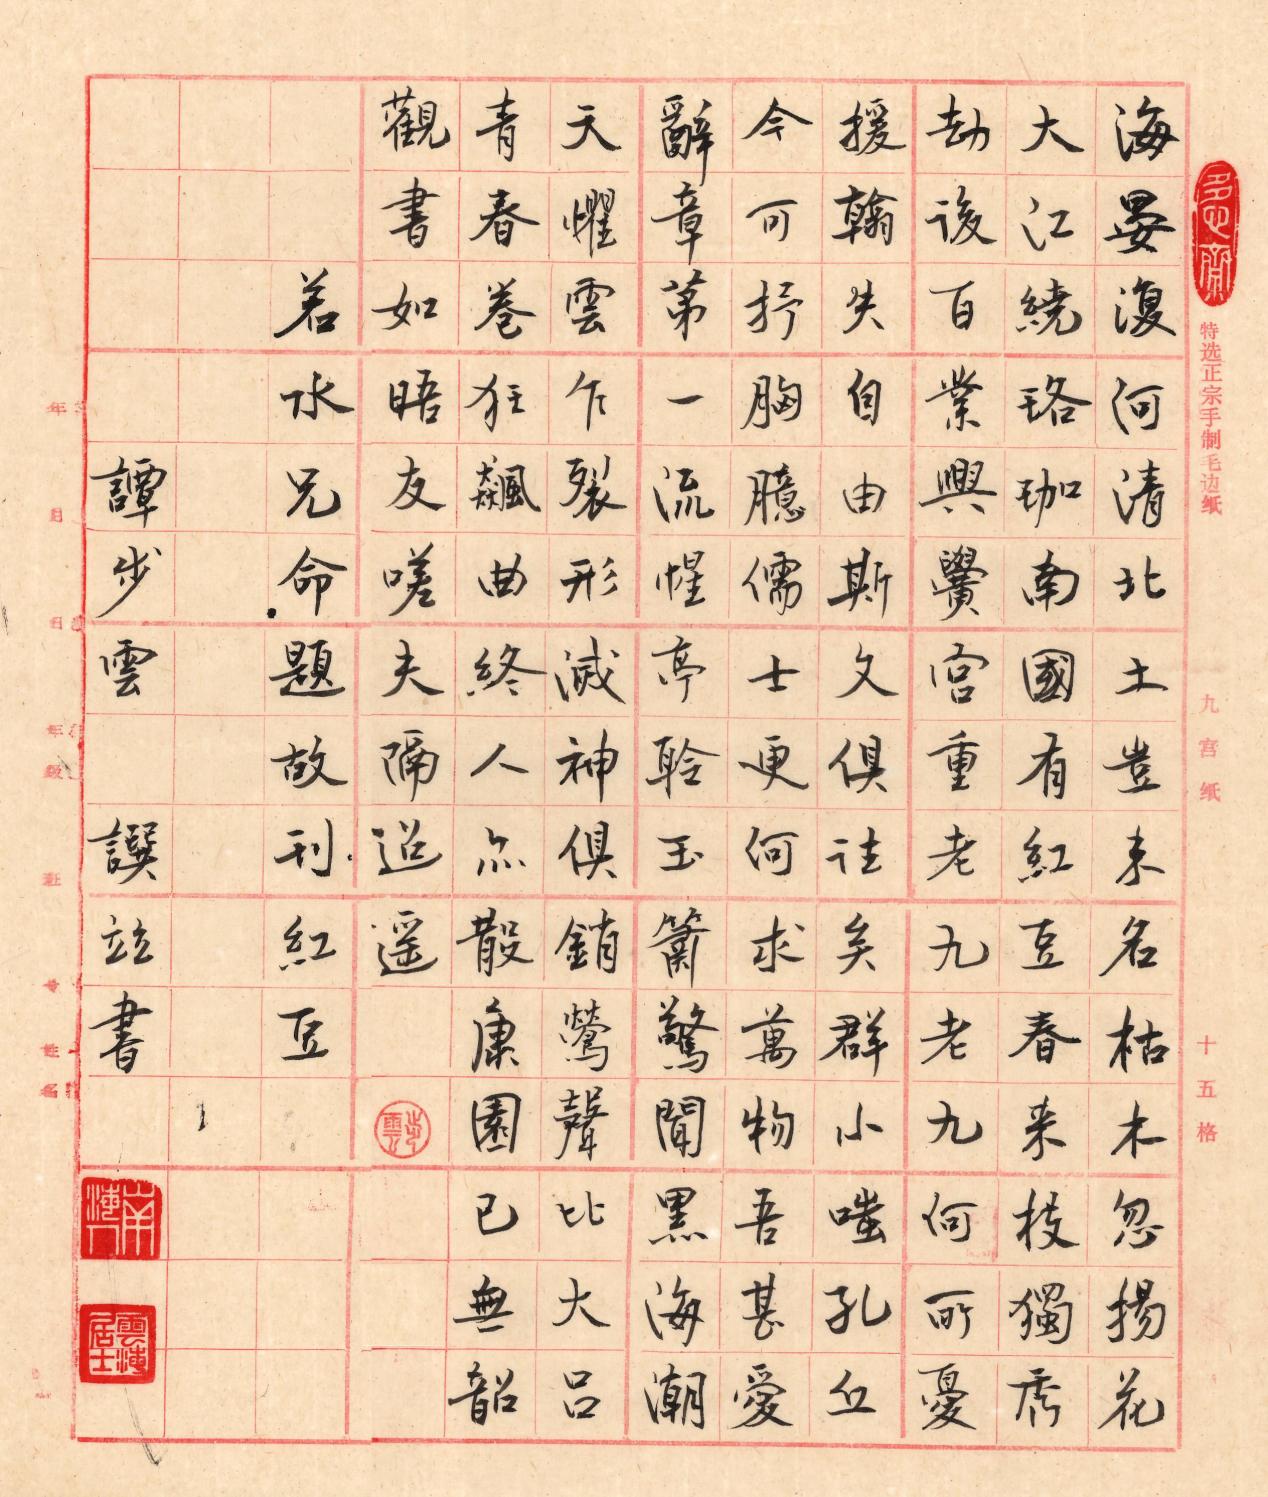 海晏復河清北土豈未名枯木忽揚花
大江繞珞珈南國有紅豆春来枝獨秀
劫後百業興黌宮重老九老九何所憂
援翰失自由斯文俱往矣群小嗤孔丘
今可抒胸臆儒士更何求萬物吾甚愛
辭章第一流惺亭聆玉簫驚聞黑海潮
天懼雲乍裂形滅神俱銷鶯聲比大呂
青春卷狂飆曲終人亦散康園已無韶
觀書如晤友嗟夫隔迢遥
步雲
若水兄命題故刊紅豆
譚步雲譔竝書
南海
雲海居士
多心齋
特选正宗手制毛边纸
九宫纸
十五格
年
日
年級
班
姓名